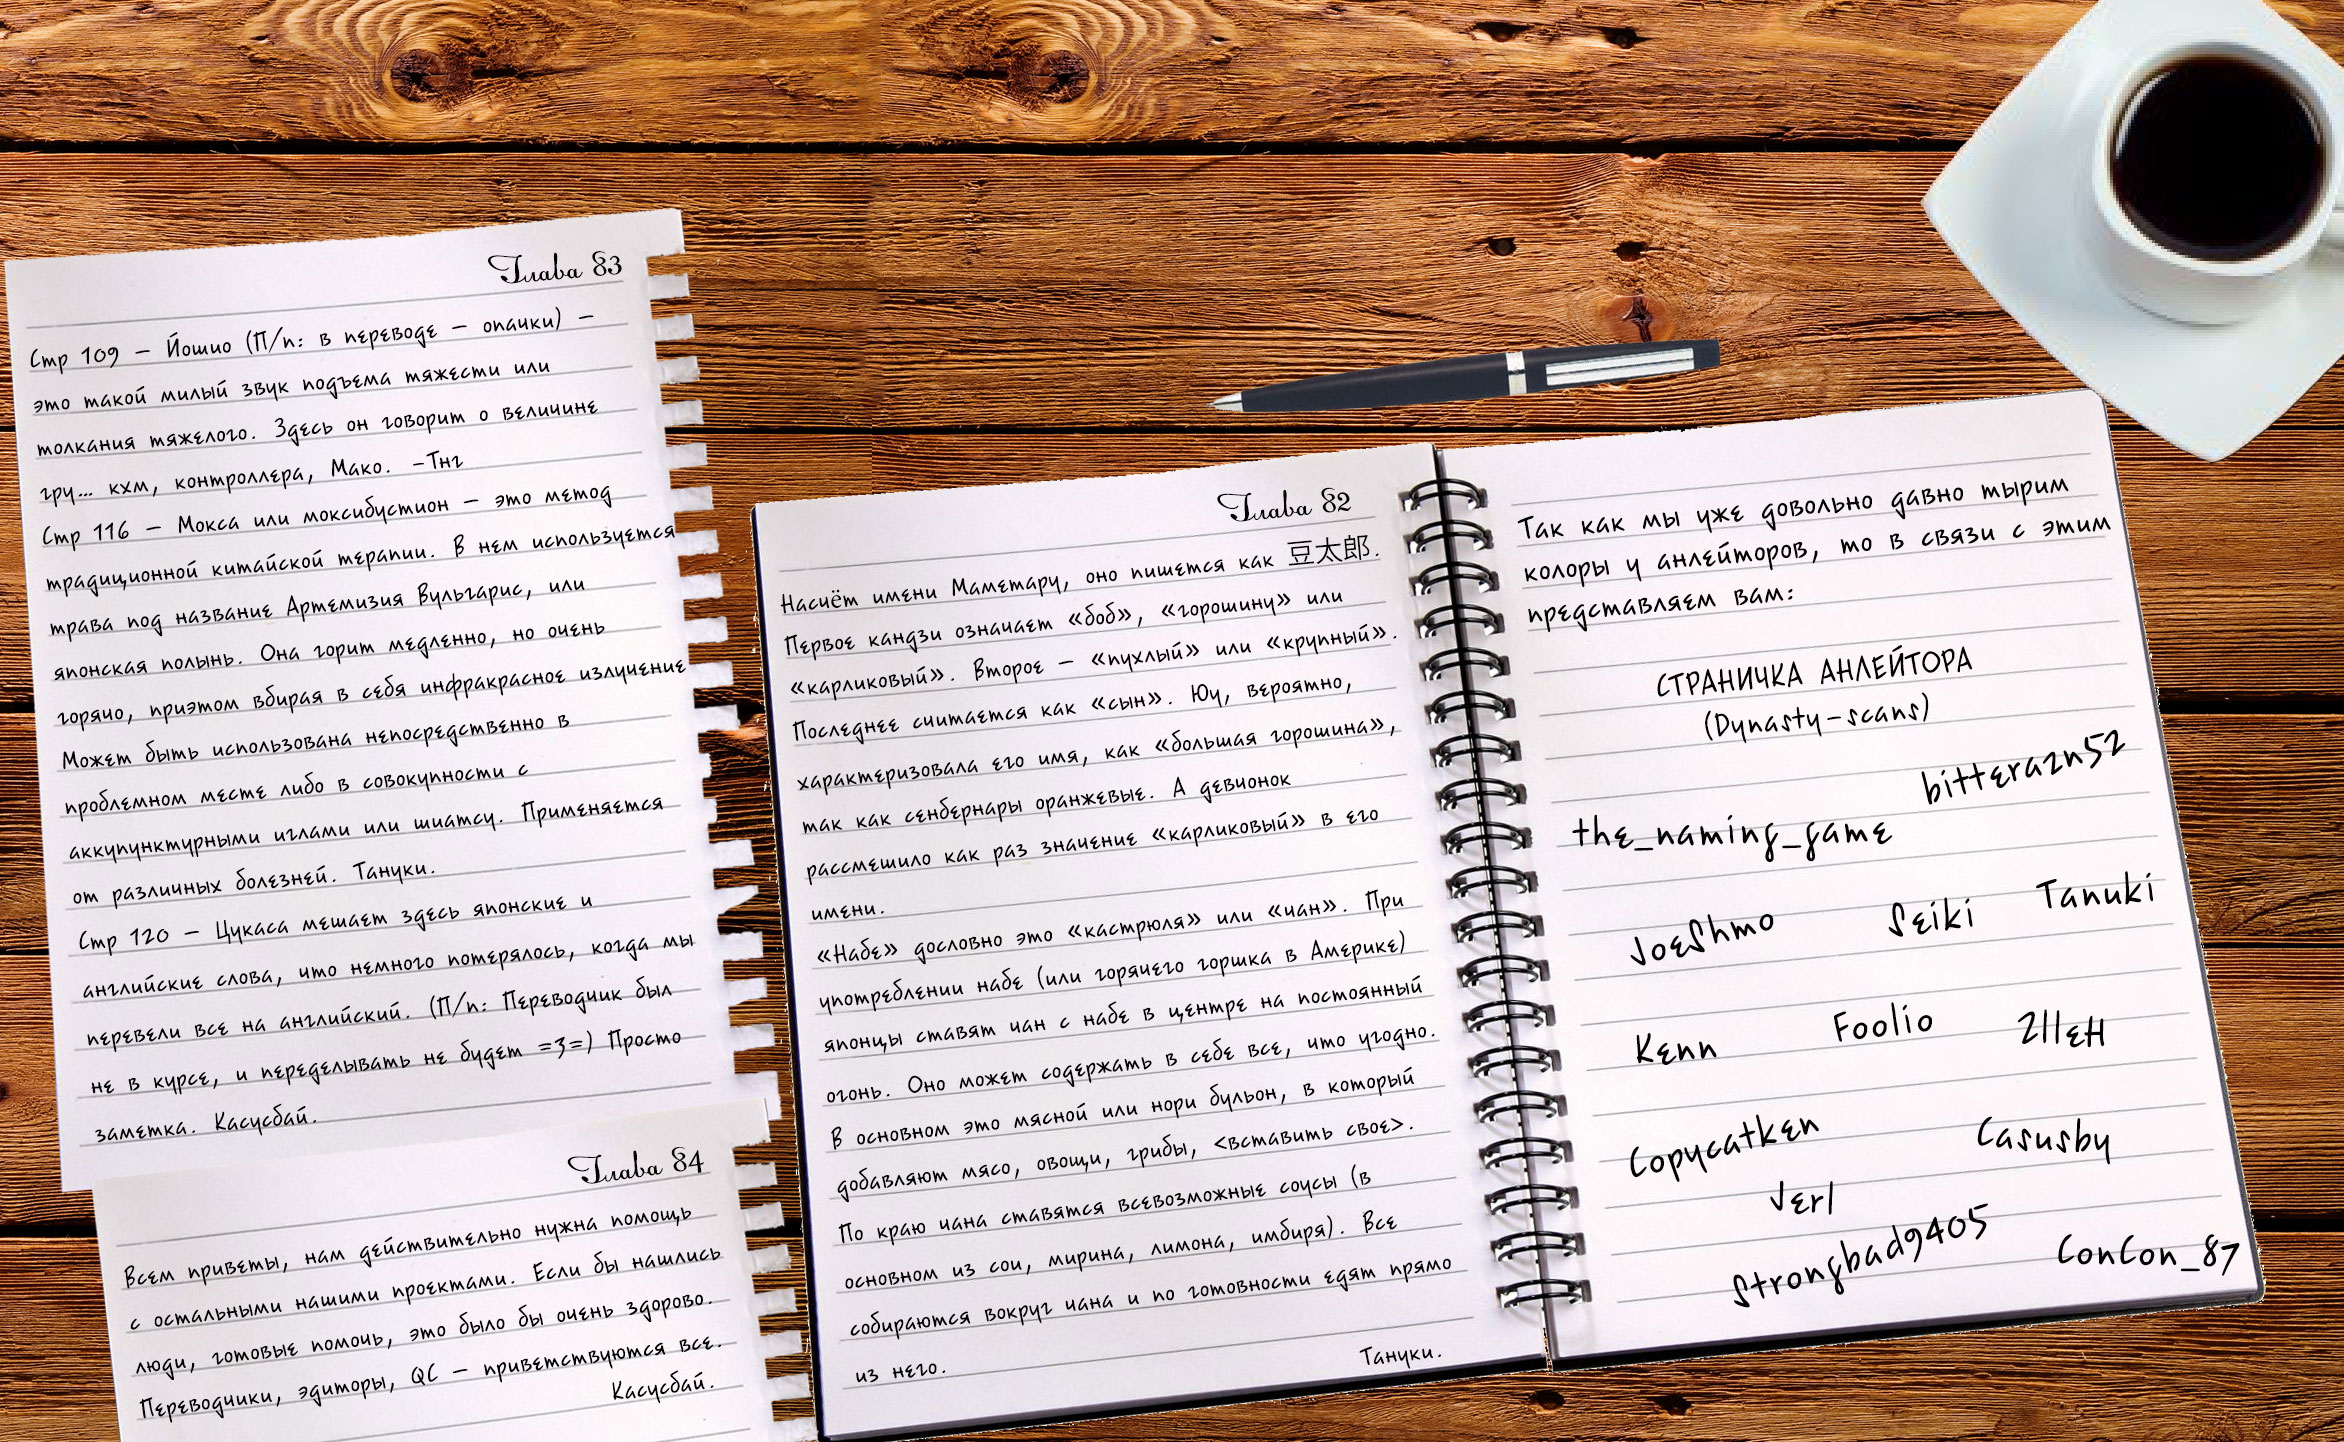 Глава 83
Стр 109 – Йошио (П/п: в переводе – опачки) –
это такой милый звук подъема тяжести или
толкания тяжелого. Здесь он говорит о величине
гру... кхм, контроллера, Мако. -Тнг
Стр 116 – Мокса или моксибустион – это метод
традиционной китайской терапии. В нем используется
трава под название Артемизия Вульгарис, или
японская полынь. Она горит медленно, но очень
горячо, приэтом вбирая в себя инфракрасное излучение
Может быть использована непосредственно в
проблемном месте либо в совокупности с
аккупунктурными иглами или шиатсу. Применяется
от различных болезней. Тануки.
Стр 120 – Цукаса мешает здесь японские и
английские слова, что немного потерялось, когда мы
перевели все на английский. (П/п: Переводчик был
не в курсе, и переделывать не будет =3=) Просто
заметка. Касусбай.
Глава 84
Всем приветы, нам действительно нужна помощь
с остальными нашими проектами. Если бы нашлись
люди, готовые помочь, это было бы очень здорово.
Переводчики, эдиторы, QC – приветствуются все.
Касусбай.
Глава 82
Насчёт имени Маметару, оно пишется как 豆太郎.
Первое кандзи означает «боб», «горошину» или
«карликовый». Второе – «пухлый» или «крупный».
Последнее считается как «сын». Юу, вероятно,
характеризовала его имя, как «большая горошина»,
так как сенбернары оранжевые. А девчонок
рассмешило как раз значение «карликовый» в его
имени.
«Набе» дословно это «кастрюля» или «чан». При
употреблении набе (или горячего горшка в Америке)
японцы ставят чан с набе в центре на постоянный
огонь. Оно может содержать в себе все, что угодно.
В основном это мясной или нори бульон, в который
добавляют мясо, овощи, грибы, <вставить свое>.
По краю чана ставятся всевозможные соусы (в
основном из сои, мирина, лимона, имбиря). Все
собираются вокруг чана и по готовности едят прямо
из него.
Тануки.
Так как мы уже довольно давно тырим
колоры у анлейторов, то в связи с этим
представляем вам:
СТРАНИЧКА АНЛЕЙТОРА
(Dynasty-scans)
bitterazn52
the_naming_game
JoeShmo Seiki Tanuki
Kenn Foolio 2llEH
Copycatken Casusby
Verl
Strongbad9405 ConCon_87